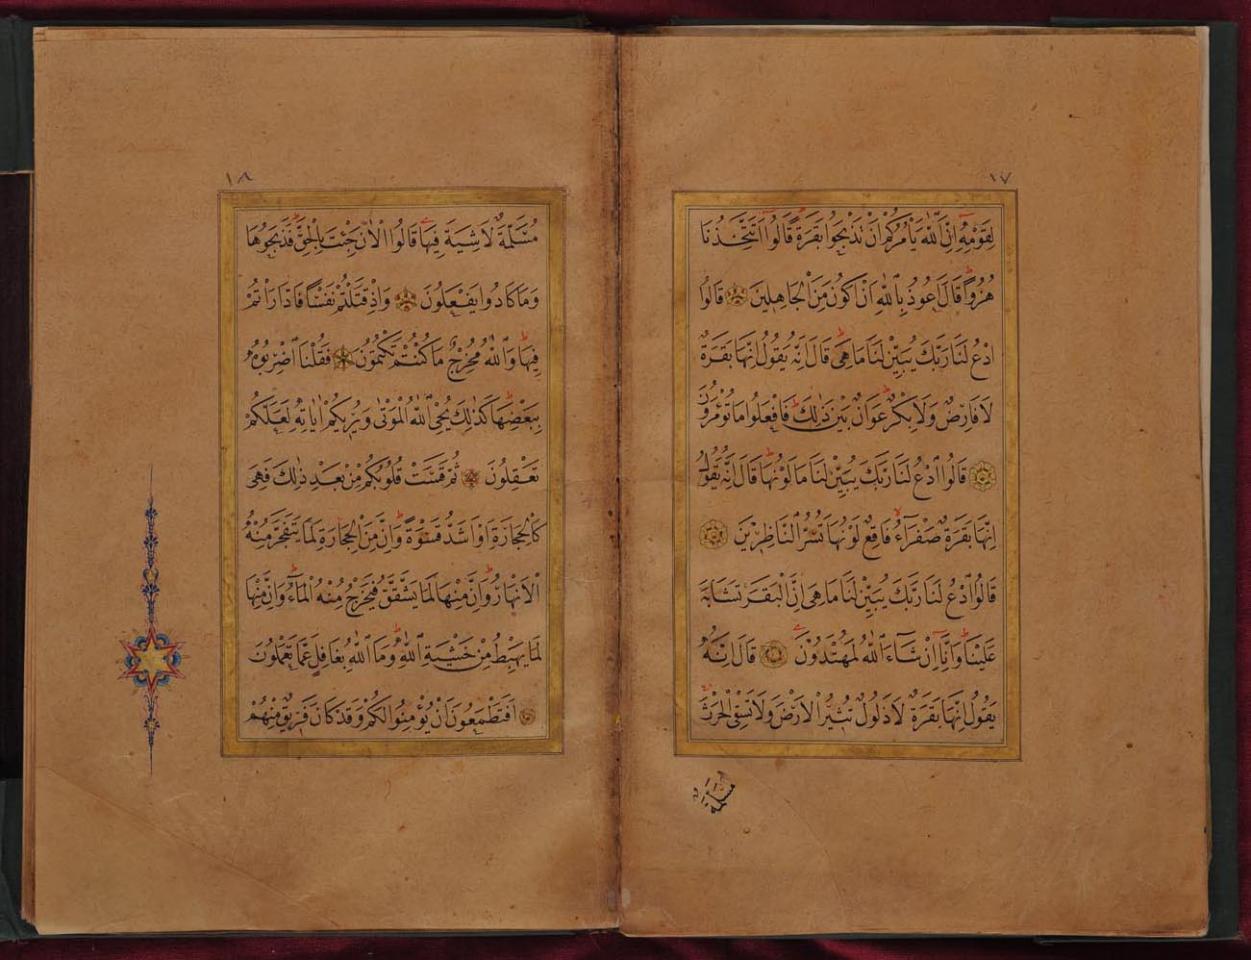 ١٧
لِقَوْمِهِ إِنَّ اللّٰهَ يَأْمُرُكُمْ أَنْ تَذْبَحُوا بَقَرَةً قَالُوا أَتَتَّخِذُنَا
هُزُوًا قَالَ أَعُوذُ بِاللّٰهِ أَنْ أَكُونَ مِنَ الْجَاهِلِينَ قَالُوا
ادْعُ لَنَا رَبَّكَ يُبَيِّنْ لَنَا مَا هِيَ قَالَ إِنَّهُ يَقُولُ إِنَّهَا بَقَرَةٌ
لَا فَارِضٌ وَلَا بِكْرٌ عَوَانٌ بَيْنَ ذٰلِكَ فَافْعَلُوا مَا تُؤْمَرُونَ
قَالُوا ادْعُ لَنَا رَبَّكَ يُبَيِّنْ لَنَا مَا لَوْنُهَا قَالَ إِنَّهُ يَقُولُ
إِنَّهَا بَقَرَةٌ صَفْرَاءُ فَاقِعٌ لَوْنُهَا تَسُرُّ النَّاظِرِينَ
قَالُوا ادْعُ لَنَا رَبَّكَ يُبَيِّنْ لَنَا مَا هِيَ إِنَّ الْبَقَرَ تَشَابَهَ
عَلَيْنَا وَإِنَّا إِنْ شَاءَ اللّٰهُ لَمُهْتَدُونَ قَالَ إِنَّهُ
يَقُولُ إِنَّهَا بَقَرَةٌ لَا ذَلُولٌ تُثِيرُ الْأَرْضَ وَلَا تَسْقِي الْحَرْثَ
مُسَلَّمَةٌ
١٨
مُسَلَّمَةٌ لَا شِيَةَ فِيهَا قَالُوا الْآنَ جِئْتَ بِالْحَقِّ فَذَبَحُوهَا
وَمَا كَادُوا يَفْعَلُونَ وَإِذْ قَتَلْتُمْ نَفْسًا فَادَّارَأْتُمْ
فِيهَا وَاللّٰهُ مُخْرِجٌ مَا كُنْتُمْ تَكْتُمُونَ فَقُلْنَا اضْرِبُوهُ
بِبَعْضِهَا كَذٰلِكَ يُحْيِي اللّٰهُ الْمَوْتَى وَيُرِيكُمْ آيَاتِهِ لَعَلَّكُمْ
تَعْقِلُونَ ثُمَّ قَسَتْ قُلُوبُكُمْ مِنْ بَعْدِ ذٰلِكَ فَهِيَ
كَالْحِجَارَةِ أَوْ أَشَدُّ قَسْوَةً وَإِنَّ مِنَ الْحِجَارَةِ لَمَا يَتَفَجَّرُ مِنْهُ
الْأَنْهَارُ وَإِنَّ مِنْهَا لَمَا يَشَّقَّقُ فَيَخْرُجُ مِنْهُ الْمَاءُ وَإِنَّ مِنْهَا
لَمَا يَهْبِطُ مِنْ خَشْيَةِ اللّٰهِ وَمَا اللّٰهُ بِغَافِلٍ عَمَّا تَعْمَلُونَ
أَفَتَطْمَعُونَ أَنْ يُؤْمِنُوا لَكُمْ وَقَدْ كَانَ فَرِيقٌ مِنْهُمْ